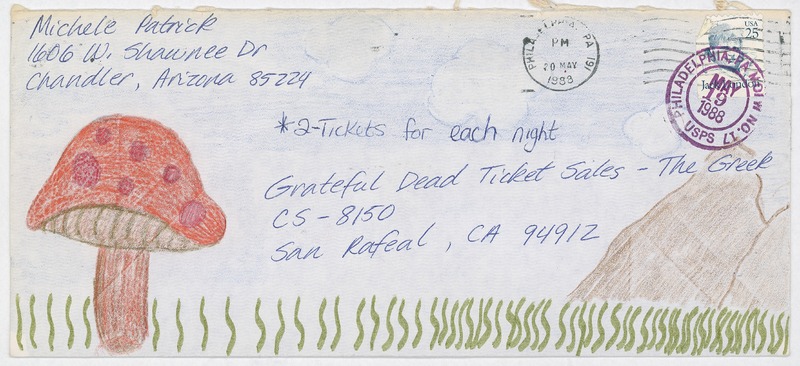 Michele Patrick
1606 W. Shawnee Dr
Chandler, Arizona 85224
PHILADELPHIA, PA 191
PM
20 MAY
1988
USA
25
PHILADELPHIA, PA
MAY
19
1988
USPS
*2-Tickets for each night
Grateful Dead Ticket Sales - The Greek
CS-8150
San Rafeal, CA 94912